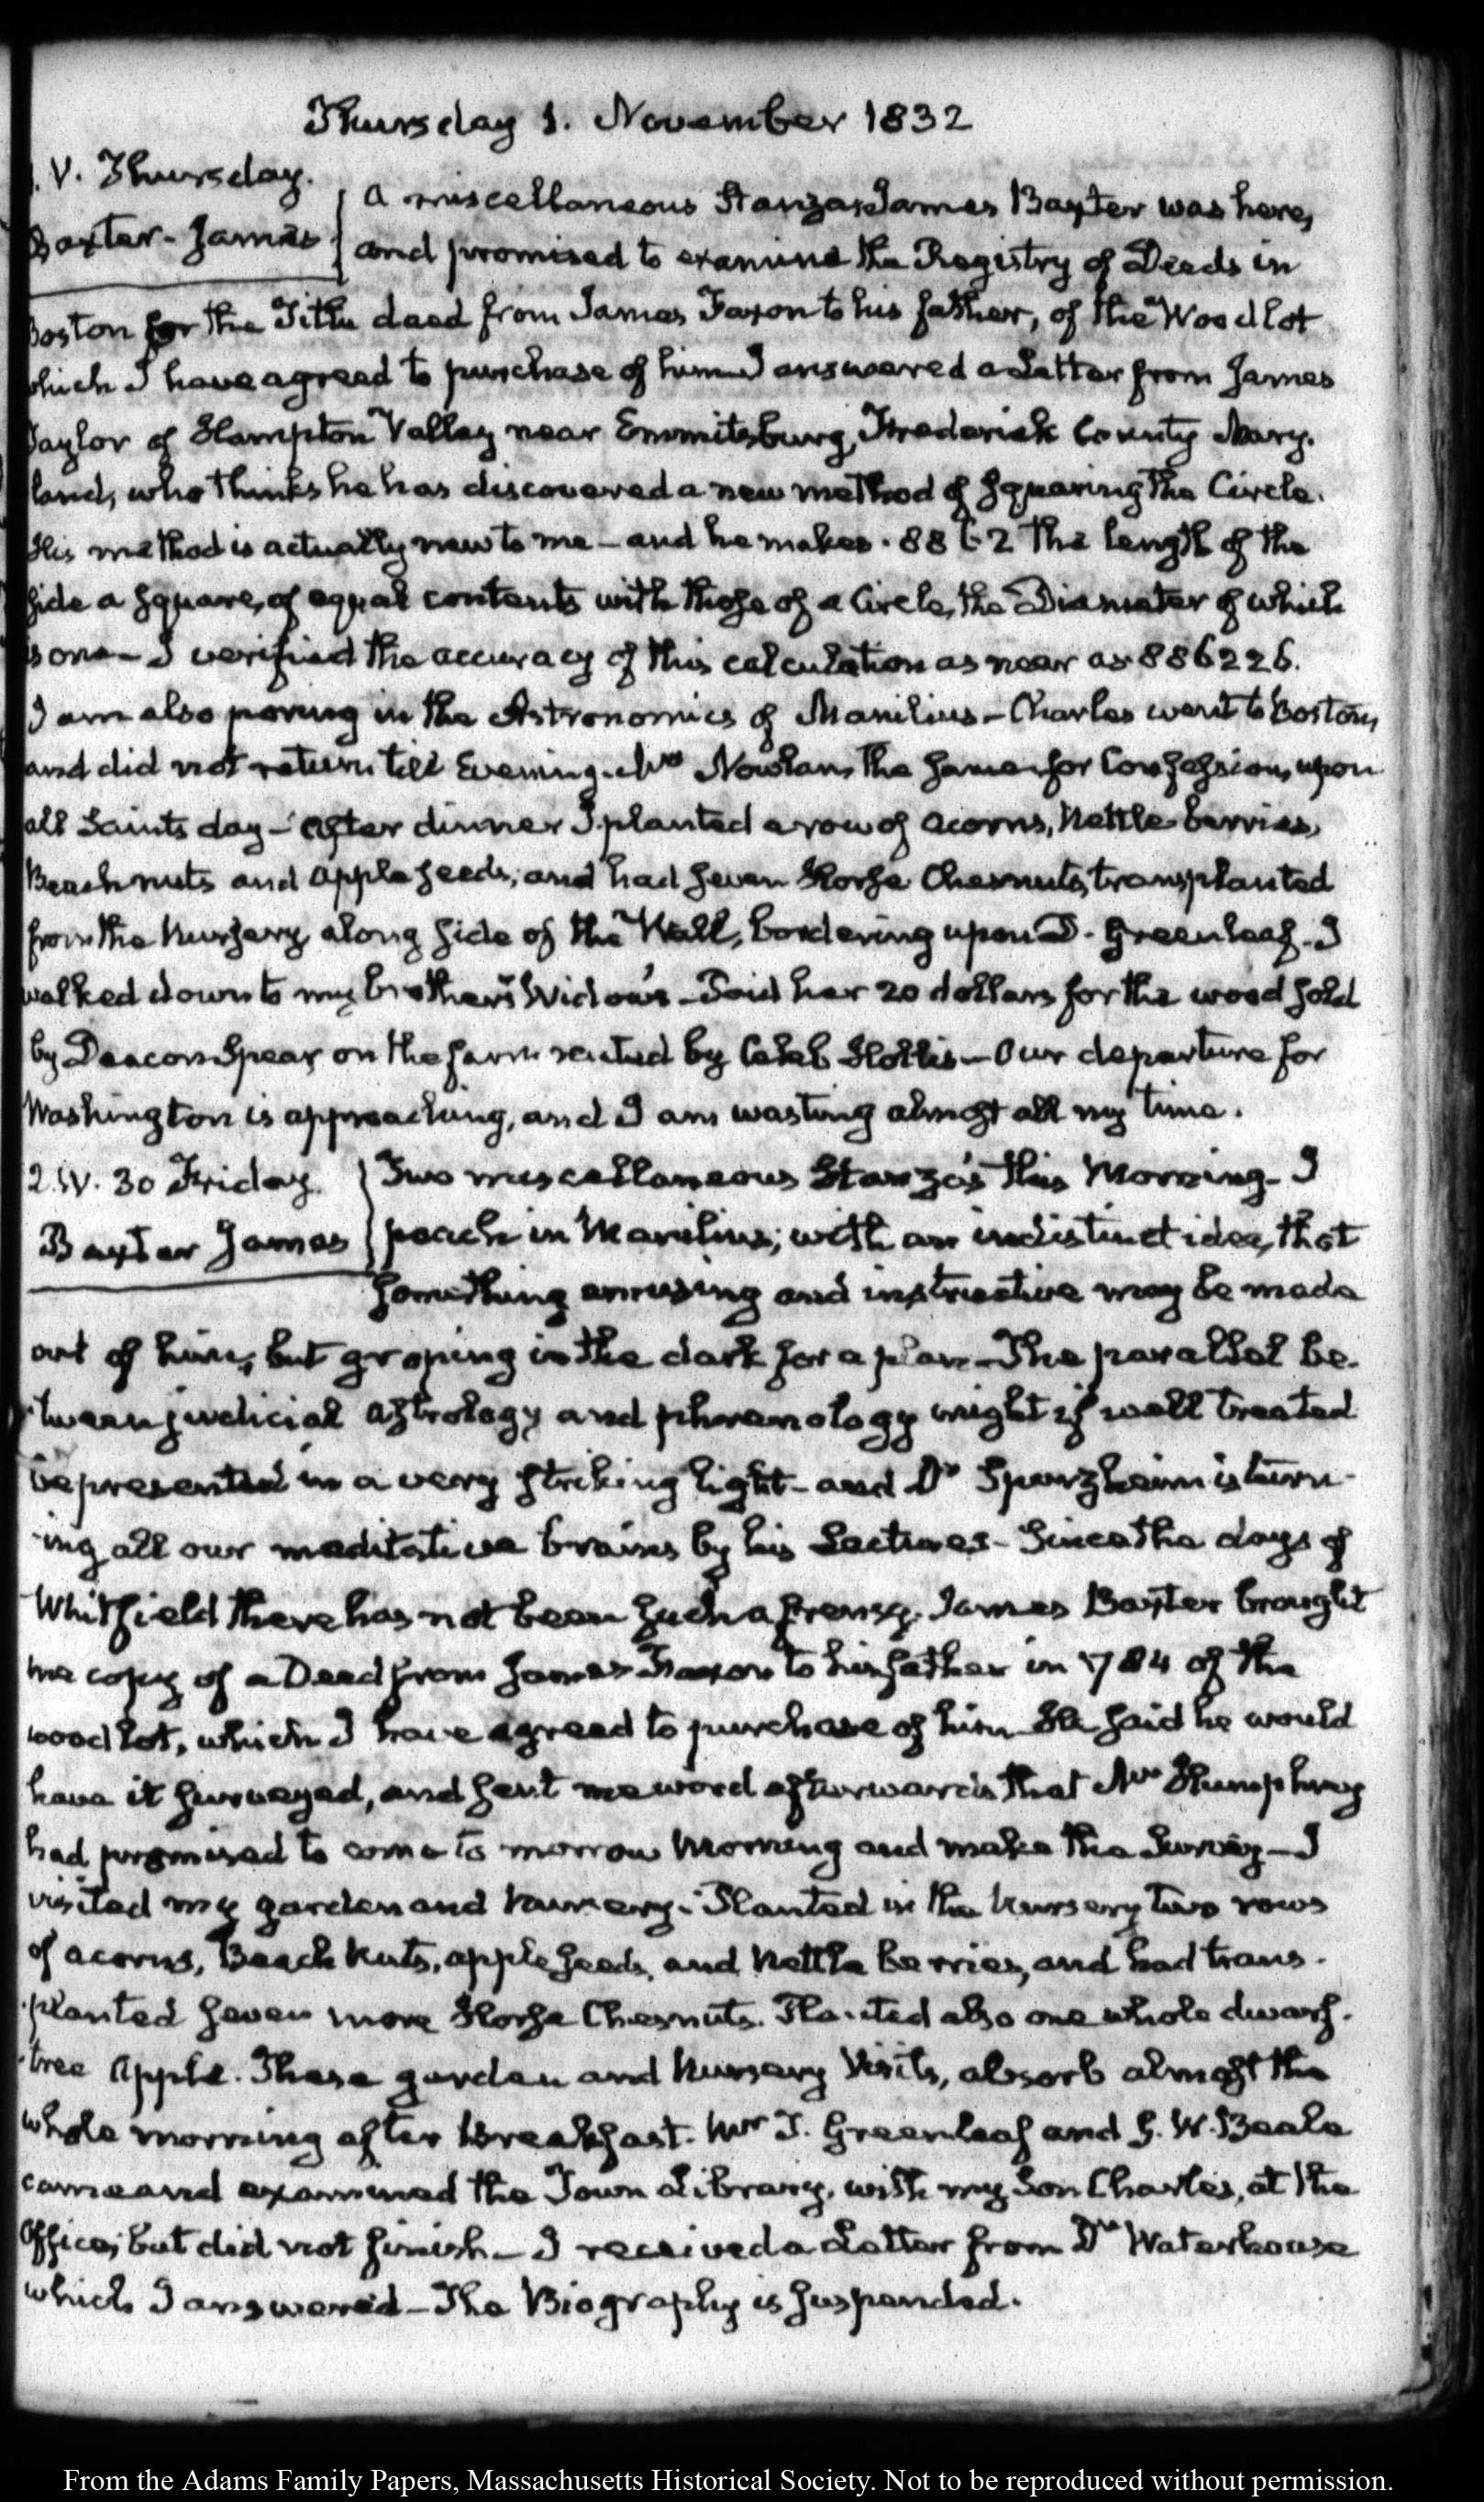 Thursday 1. November 1832
. V. Thursday.
Baxter-James
A miscellaneous Stanza. James Baxter was here,
and promised to examine the Registry of Deeds in
Boston for the Title deed from James Faxon to his father, of the Wood lot
which I have agreed to purchase of him. I answered a Letter from James
Taylor of Hampton Valley near Emmitsburg, Frederick County Mary-
land, who thinks he has discovered a new method of squaring the Circle.
His method is actually new to me - and he makes .8862 the length of the
side a square, of equal contents with those of a Circle, the Diameter of which
is one - I verified the accuracy of this calculation as near as 886226.
I am also poring in the Astronomics of Manilius - Charles went to Boston,
and did not return till Evening. Mrs Nowlan, the same for Confession, upon
all Saints day - After dinner I planted a row of acorns, Nettle berries,
Beach nuts and apple seeds; and had seven Horse Chesnuts, transplanted
from the Nursery, along side of the Wall, bordering upon D. Greenleaf. I
walked down to my brother's Widow's - Paid her 20 dollars for the wood sold
by Deacon Spear, on the farm rented by Caleb Hollis - Our departure for
Washington is approaching, and I am wasting almost all my time.
2. IV. 30 Friday.
Baxter James
Two miscellaneous Stanza's this Morning - I
poach in Manilius; with an indistinct idea, that
something amusing and instructive may be made
out of him, but groping in the dark for a plan - The parallel be-
tween judicial astrology and phrenology might if well treated
be presented in a very striking light - and Dr Spurzheim is turn-
-ing all our meditative brains by his Lectures - Since the days of
Whitfield there has not been such a frensy. James Baxter brought
me copy of a Deed from James Faxon to his father in 1784 of the
wood lot, which I have agreed to purchase of him. He said he would
have it surveyed, and sent me word afterwards that Mr Humphrey
had promised to come to morrow Morning and make the Survey - I
visited my garden and Nursery. Planted in the Nursery two rows
of acorns, Beach Nuts, apple seeds, and Nettle berries, and had trans-
-planted seven more Horse Chesnuts. Planted also one whole dwarf-
-tree Apple. These garden and Nursery Visits, absorb almost the
whole morning after breakfast. Mr T. Greenleaf and G. W. Beale
came and examined the Town Library, with my Son Charles, at the
Office; but did not finish - I received a Letter from Dr Waterhouse
which I answered - The Biography is suspended.
From the Adams Family Papers, Massachusetts Historical Society. Not to be reproduced without permission.